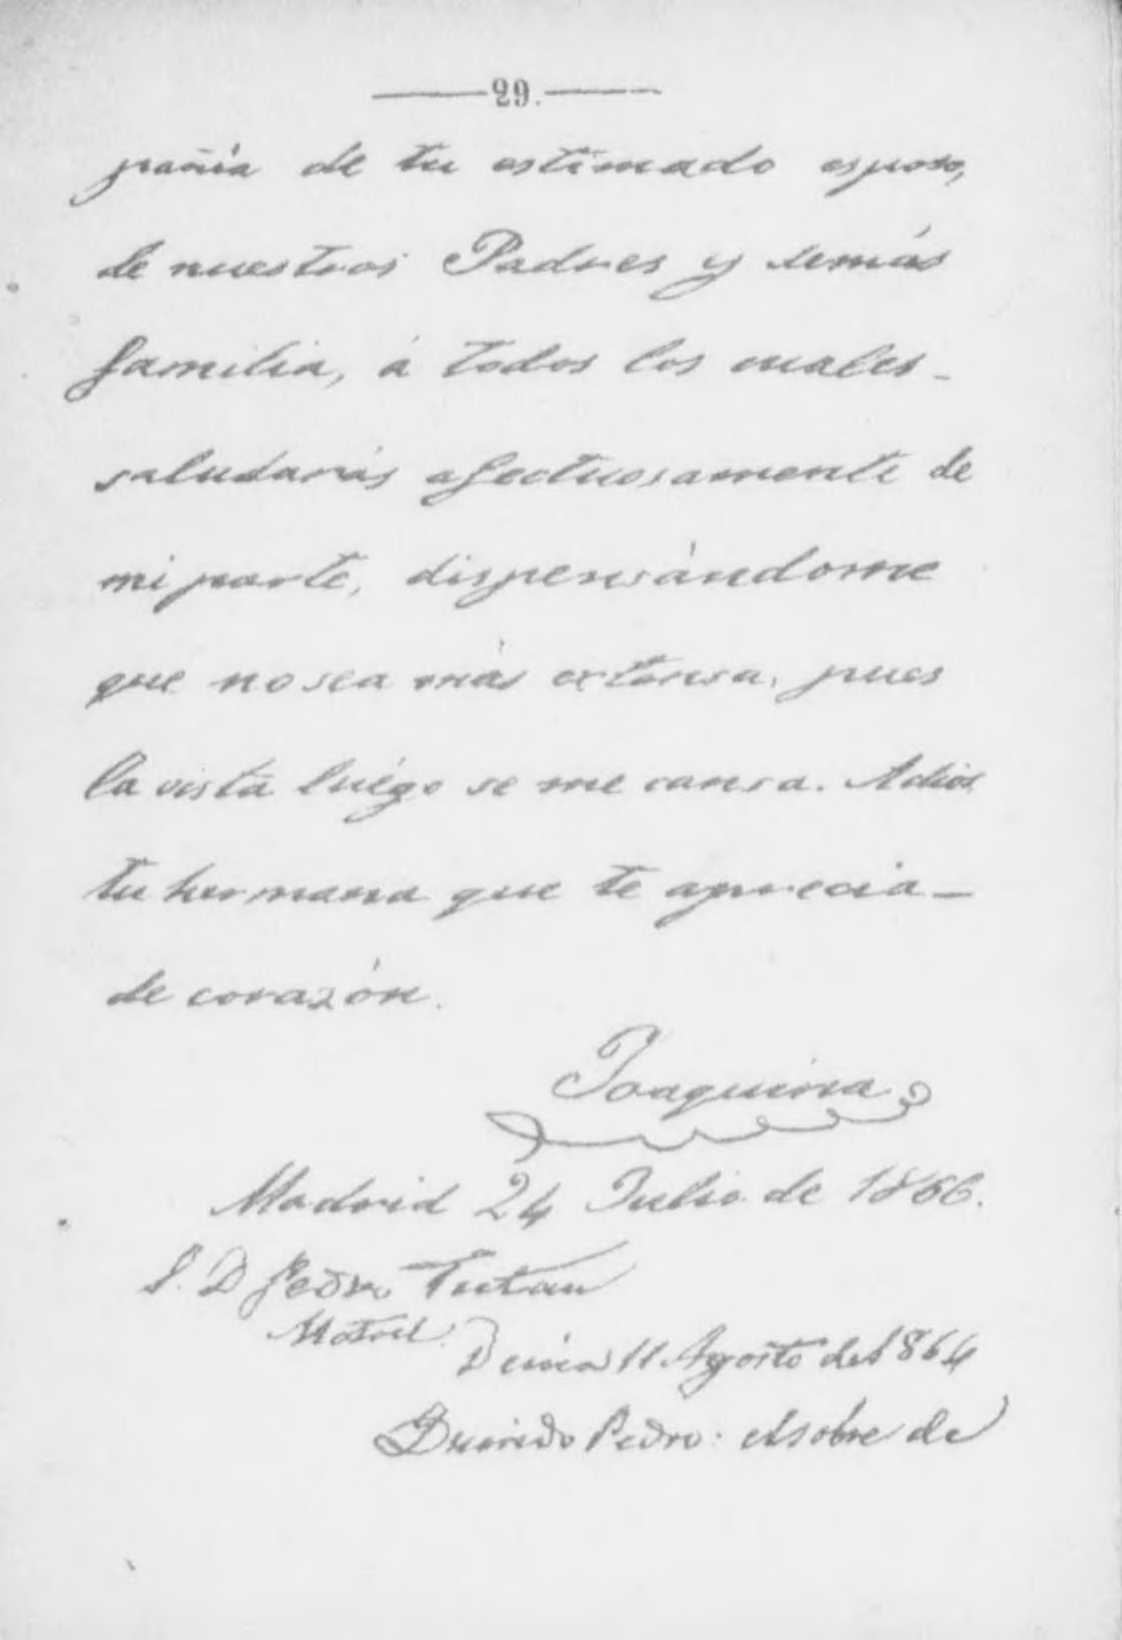 29.
pañía de tu estimado esposo,
de nuestros Padres y demás
familia, á todos los cuales-
saludarás afectuosamente de
mi parte, dispensándome
que no sea más extensa, pues
la vista luégo se me cansa. Adios
tu hermana que te aprecia-
de corazón.
Joaquina
Madrid 24 Julio de 1866.
S. D Pedro
Motril.
Denia 11 Agosto de 1864
Querido Pedro: el sobre de